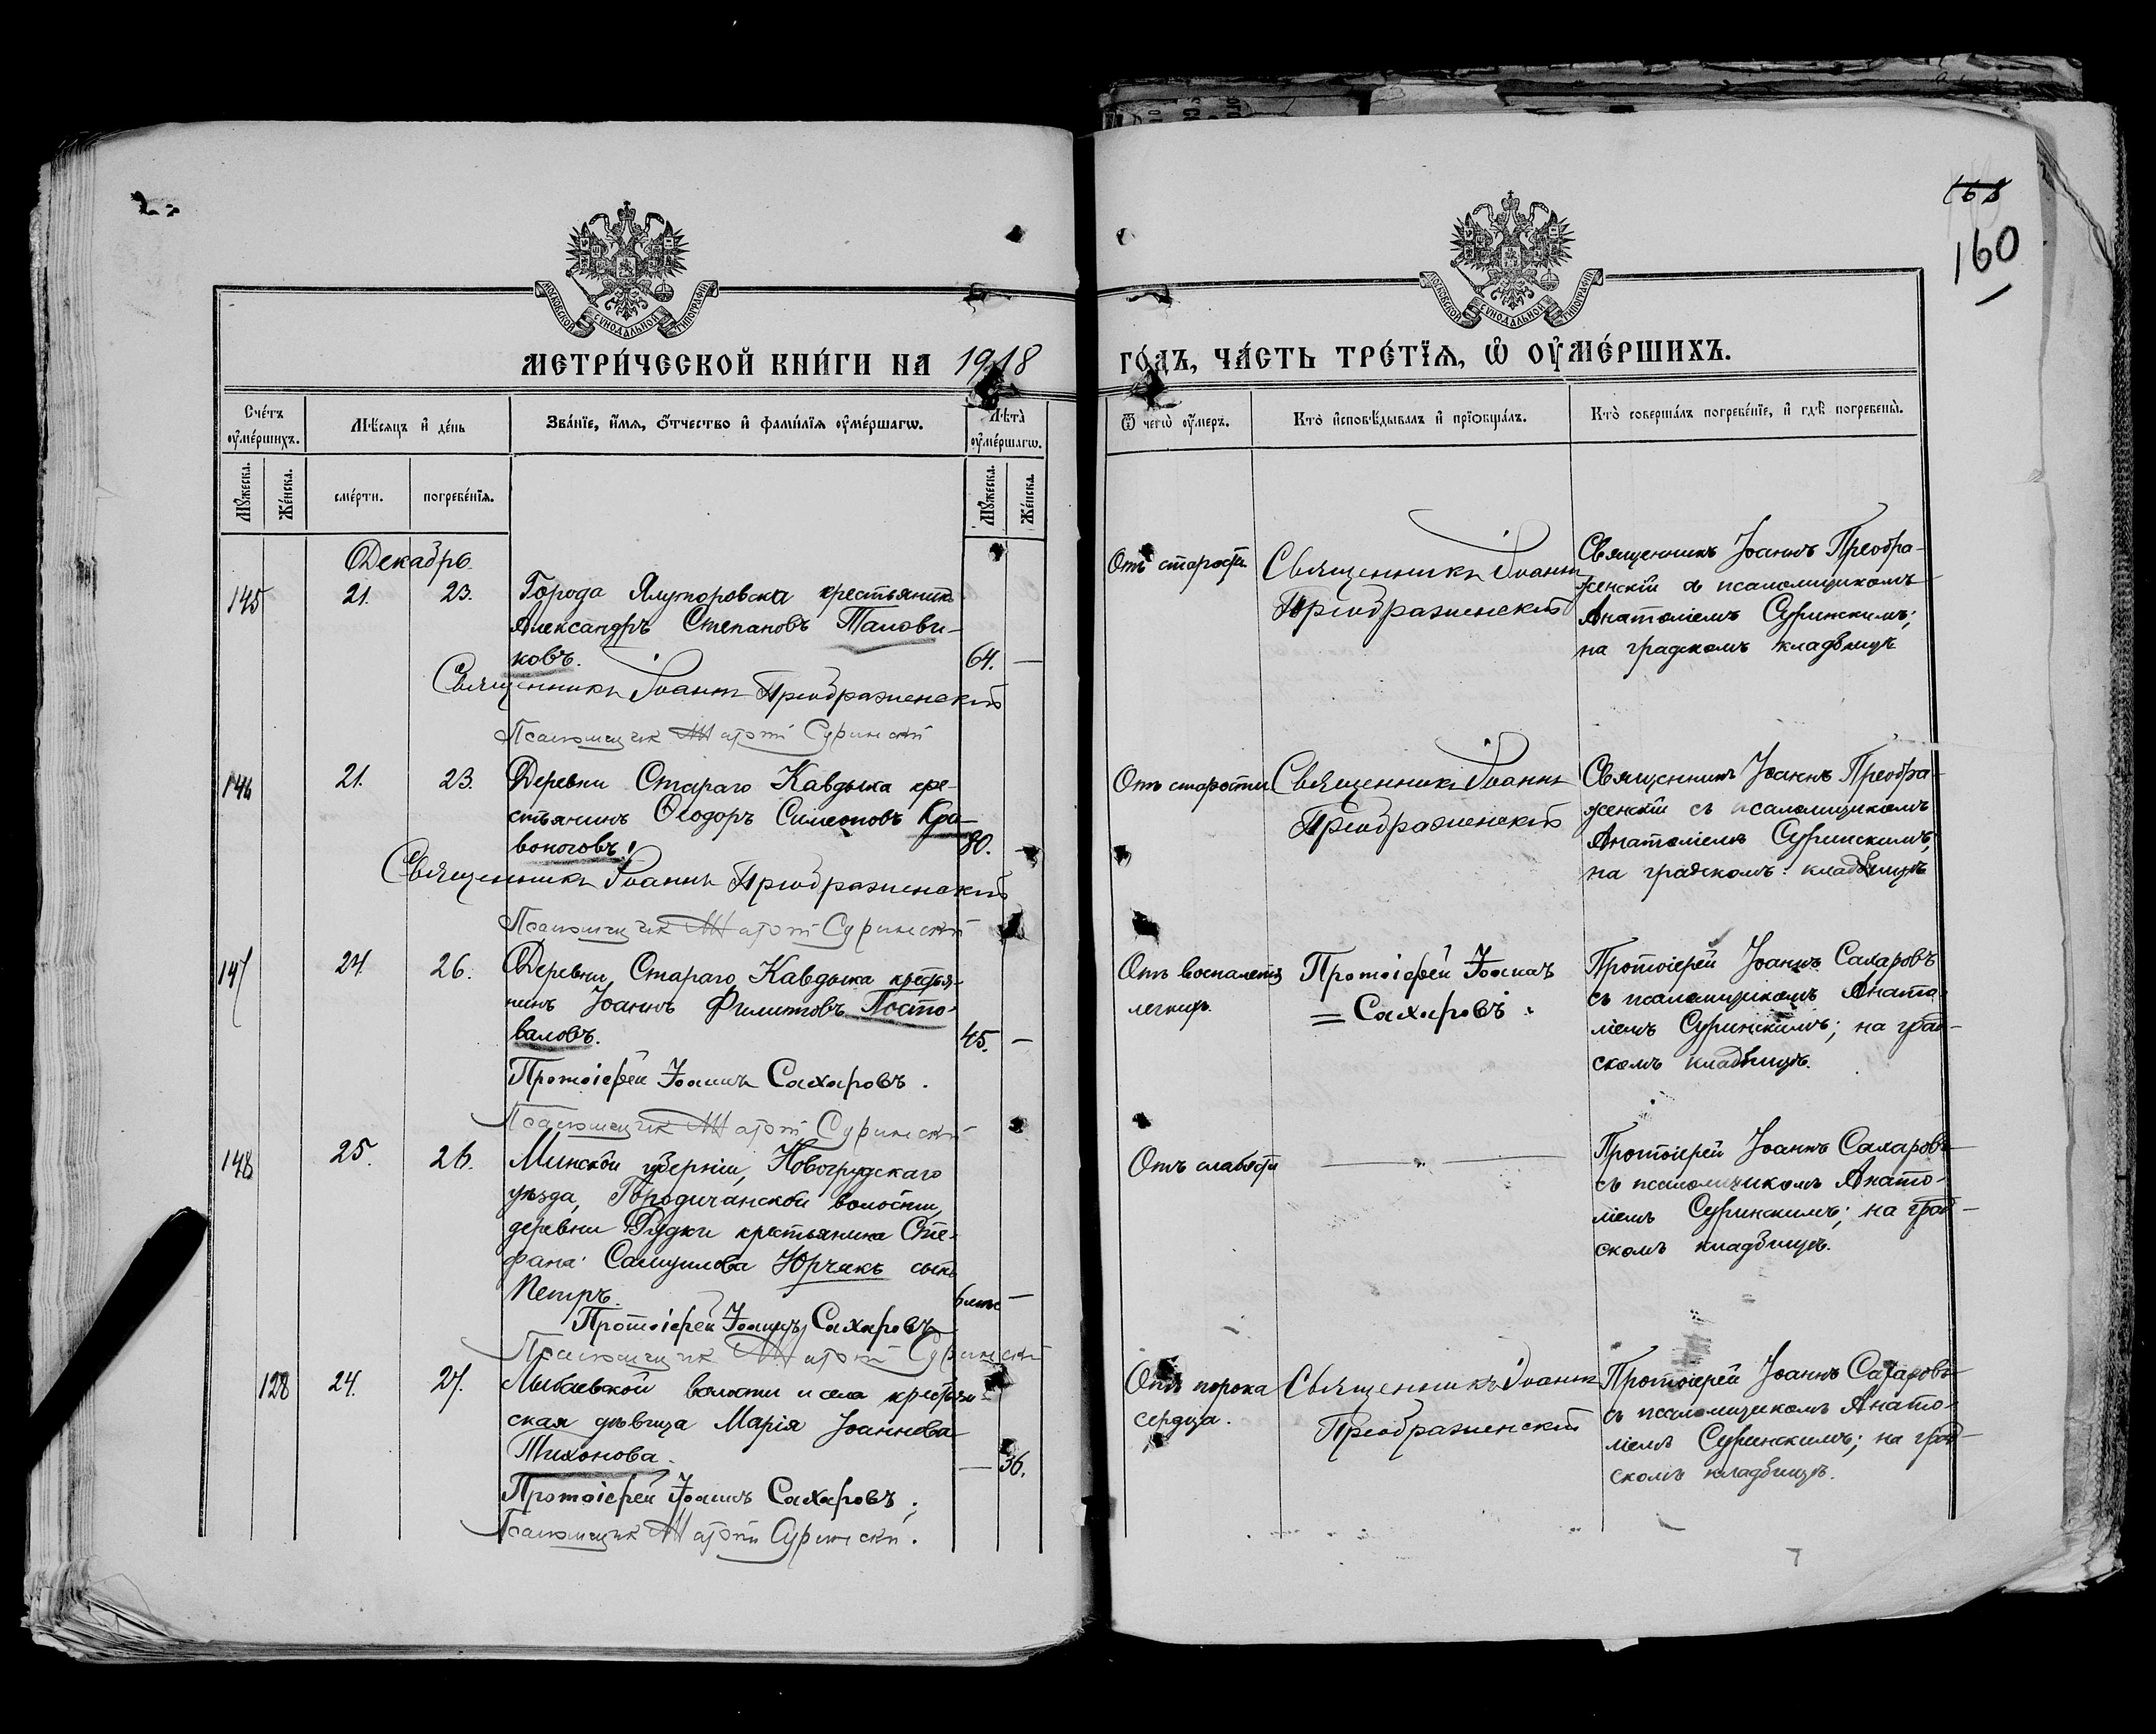 168
160
МОСКОВСКОЙ СѴНОДАЛЬНОЙ ТИПОГРАФІИ
МОСКОВСКОЙ СѴНОДАЛЬНОЙ ТИПОГРАФІИ
МЕТРИ́ЧЕСКОЙ КНИ́ГИ НА 1918
ГО́ДЪ, ЧА́СТЬ ТРЕ́ТЇѦ, Ѽ ОУ҆МЕ́РШИХЪ.
Сче́тъ оу҆ме́ршихъ.
Мѣ́сяцъ и҆ де́нь
Зва́нїе, и҆́мѧ, ѻ҆́тчество и҆ фами́лїѧ оу҆ме́ршагѡ.
Лѣта̀ оу҆ме́ршагѡ.
Мꙋ́жеска.
Же́нска.
сме́рти.
погребе́нїѧ.
Мꙋ́жеска.
Же́нска.
Ѿ чегѡ̀ оу҆́меръ.
Кто̀ и҆сповѣ́дывалъ и҆ прїѡбща́лъ.
Кто̀ соверша́лъ погребе́нїе, и҆ гдѣ̀ погребены̀.
Декабрь
145 21. 23. Города Ялуторовска крестьянинъ
Александръ Степановъ Талови-
ковъ. 64. —
Священникъ Іоаннъ Преображенскій
Псаломщик Анатолій Суринский
Отъ старости
Священникъ Іоаннъ
Преображенскій
Священникъ Іоаннъ Преобра-
женскій съ псаломщикомъ
Анатоліемъ Суринскимъ;
на градскомъ кладбищѣ
146 21. 23. Деревни Стараго Кавдыка кре-
стьянинъ Ѳеодоръ Симеоновъ Кри-
воноговъ. 80. —
Священникъ Іоаннъ Преображенскій
Псаломщик Анатолій Суринский
Отъ старости
Священникъ Іоаннъ
Преображенскій
Священникъ Іоаннъ Преобра-
женскій съ псаломщикомъ
Анатоліемъ Суринскимъ,
на градскомъ кладбищѣ
147 24. 26. Деревни Стараго Кавдыка крестья-
нинъ Іоаннъ Филиповъ Посто-
валовъ. 45. —
Протоіерей Іоаннъ Сахаровъ.
Псаломщик Анатолій Суринский
Отъ воспаленія
легкихъ.
Протоіерей Іоаннъ
Сахаровъ.
Протоіерей Іоаннъ Сахаровъ
съ псаломщикомъ Анато-
ліемъ Суринскимъ; на град-
скомъ кладбищѣ.
148 25. 26. Минской губерніи, Новогрудскаго
уѣзда, Городичанской волости,
деревни Рудки крестьянина Сте-
фана Самуилова Юрчикъ сынъ
Петръ. —
Протоіерей Іоаннъ Сахаровъ
Псаломщик Анатолій Суринский
Отъ слабости
— " —
Протоіерей Іоаннъ Сахаровъ
съ псаломщикомъ Анато-
ліемъ Суринскимъ; на град-
скомъ кладбищѣ.
128 24. 27. Лыбаевской волости и села крестьян-
ская дѣвица Марія Іоаннова
Тихонова. — 36.
Протоіерей Іоаннъ Сахаровъ;
Псаломщик Анатолій Суринский.
Отъ порока
сердца.
Священникъ Іоаннъ
Преображенскій
Протоіерей Іоаннъ Сахаровъ
съ псаломщикомъ Анато-
ліемъ Суринскимъ; на град-
скомъ кладбищѣ.